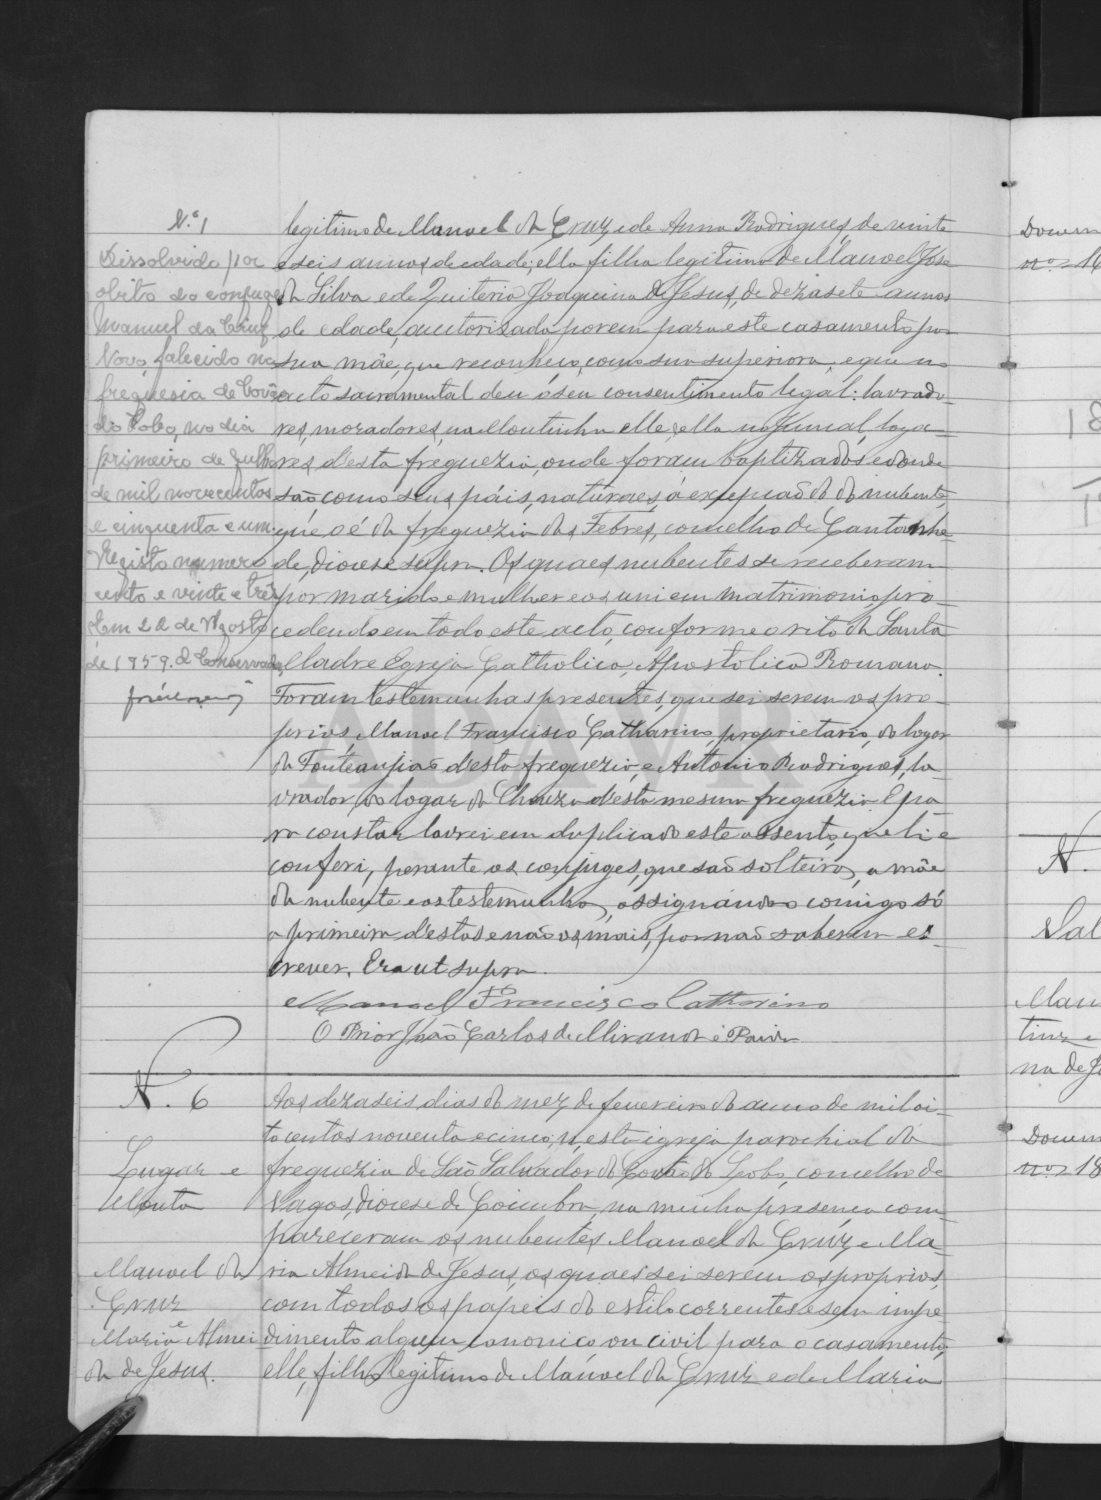 N.º 1
Dissolvido por
obito do conjuge
Manuel da Cruz
Novo, falecido na
freguesia de Covão
do Lobo, no dia
primeiro de Julho
de mil novecentos
e cinquenta e um.
Registo numero
cento e vinte e três
Em 22 de Agosto
de 1959. O Conservador,
legitimo de Manoel da Cruz, e de Anna Rodrigues, de vinte
e seis annos de edade; ella filha legitima de Manoel José
da Silva e de Quiteria Joaquina de Jesus, de dezasete annos
de edade, auctorisada porem para este casamento por
sua mãe, que reconheço, como sua superiora, e que no
acto sacramental deu o seu consentimento legal: lavrado-
res, moradores, na Moutinha elle, ella no Juncal, loga-
res d'esta freguezia, onde foram baptizados e donde
são como seus páis, naturaes, á excepção do da nubente
que o é da freguezia das Febres, concelho de Cantanhe-
de, diocese supra. Os quaes nubentes se receberam
por marido e mulher e os uni em matrimonio, pro-
cedendo em todo este acto, conforme o rito da Santa
Madre Egreja Catholica, Apostolica Romana.
Foram testemunhas presentes, que sei serem os pro-
prios, Manoel Francisco Catharino, proprietario, do logar
da Fonteangião d'esta freguezia, e Antonio Rodrigues, la-
vrador, do logar da Chouza d'esta mesma freguezia. E pa-
ra constar lavrei em duplicado este assento, que li e
conferi, perante os conjuges, que são solteiros, a mãe
da nubente e as testemunhas, assignando comigo só
a primeira d'estas e não os mais, por não saberem es-
crever. Era ut supra.
Manoel Francisco Catharino
O Prior João Carlos de Miranda e Paiva
N. 6
Lugar e
Mouta
Manoel da
Cruz
e
Maria Almei
da de Jesus.
Aos dezaseis dias do mez de fevereiro do anno de mil oi-
tocentos noventa e cinco, n'esta igreja parochial da
freguezia de São Salvador do Covão do Lobo, concelho de
Vagos, diocese de Coimbra, na minha presença com-
pareceram os nubentes Manoel da Cruz e Ma-
ria Almeida de Jesus, os quaes sei serem os proprios,
com todos os papeis do estilo correntes e sem impe-
dimento algum, canonico, ou civil para o casamento;
elle, filho legitimo de Manoel da Cruz e de Maria
Docum
nos 16
18
N.
Sal
Man
tinz e
na de J
Docum
nos 18